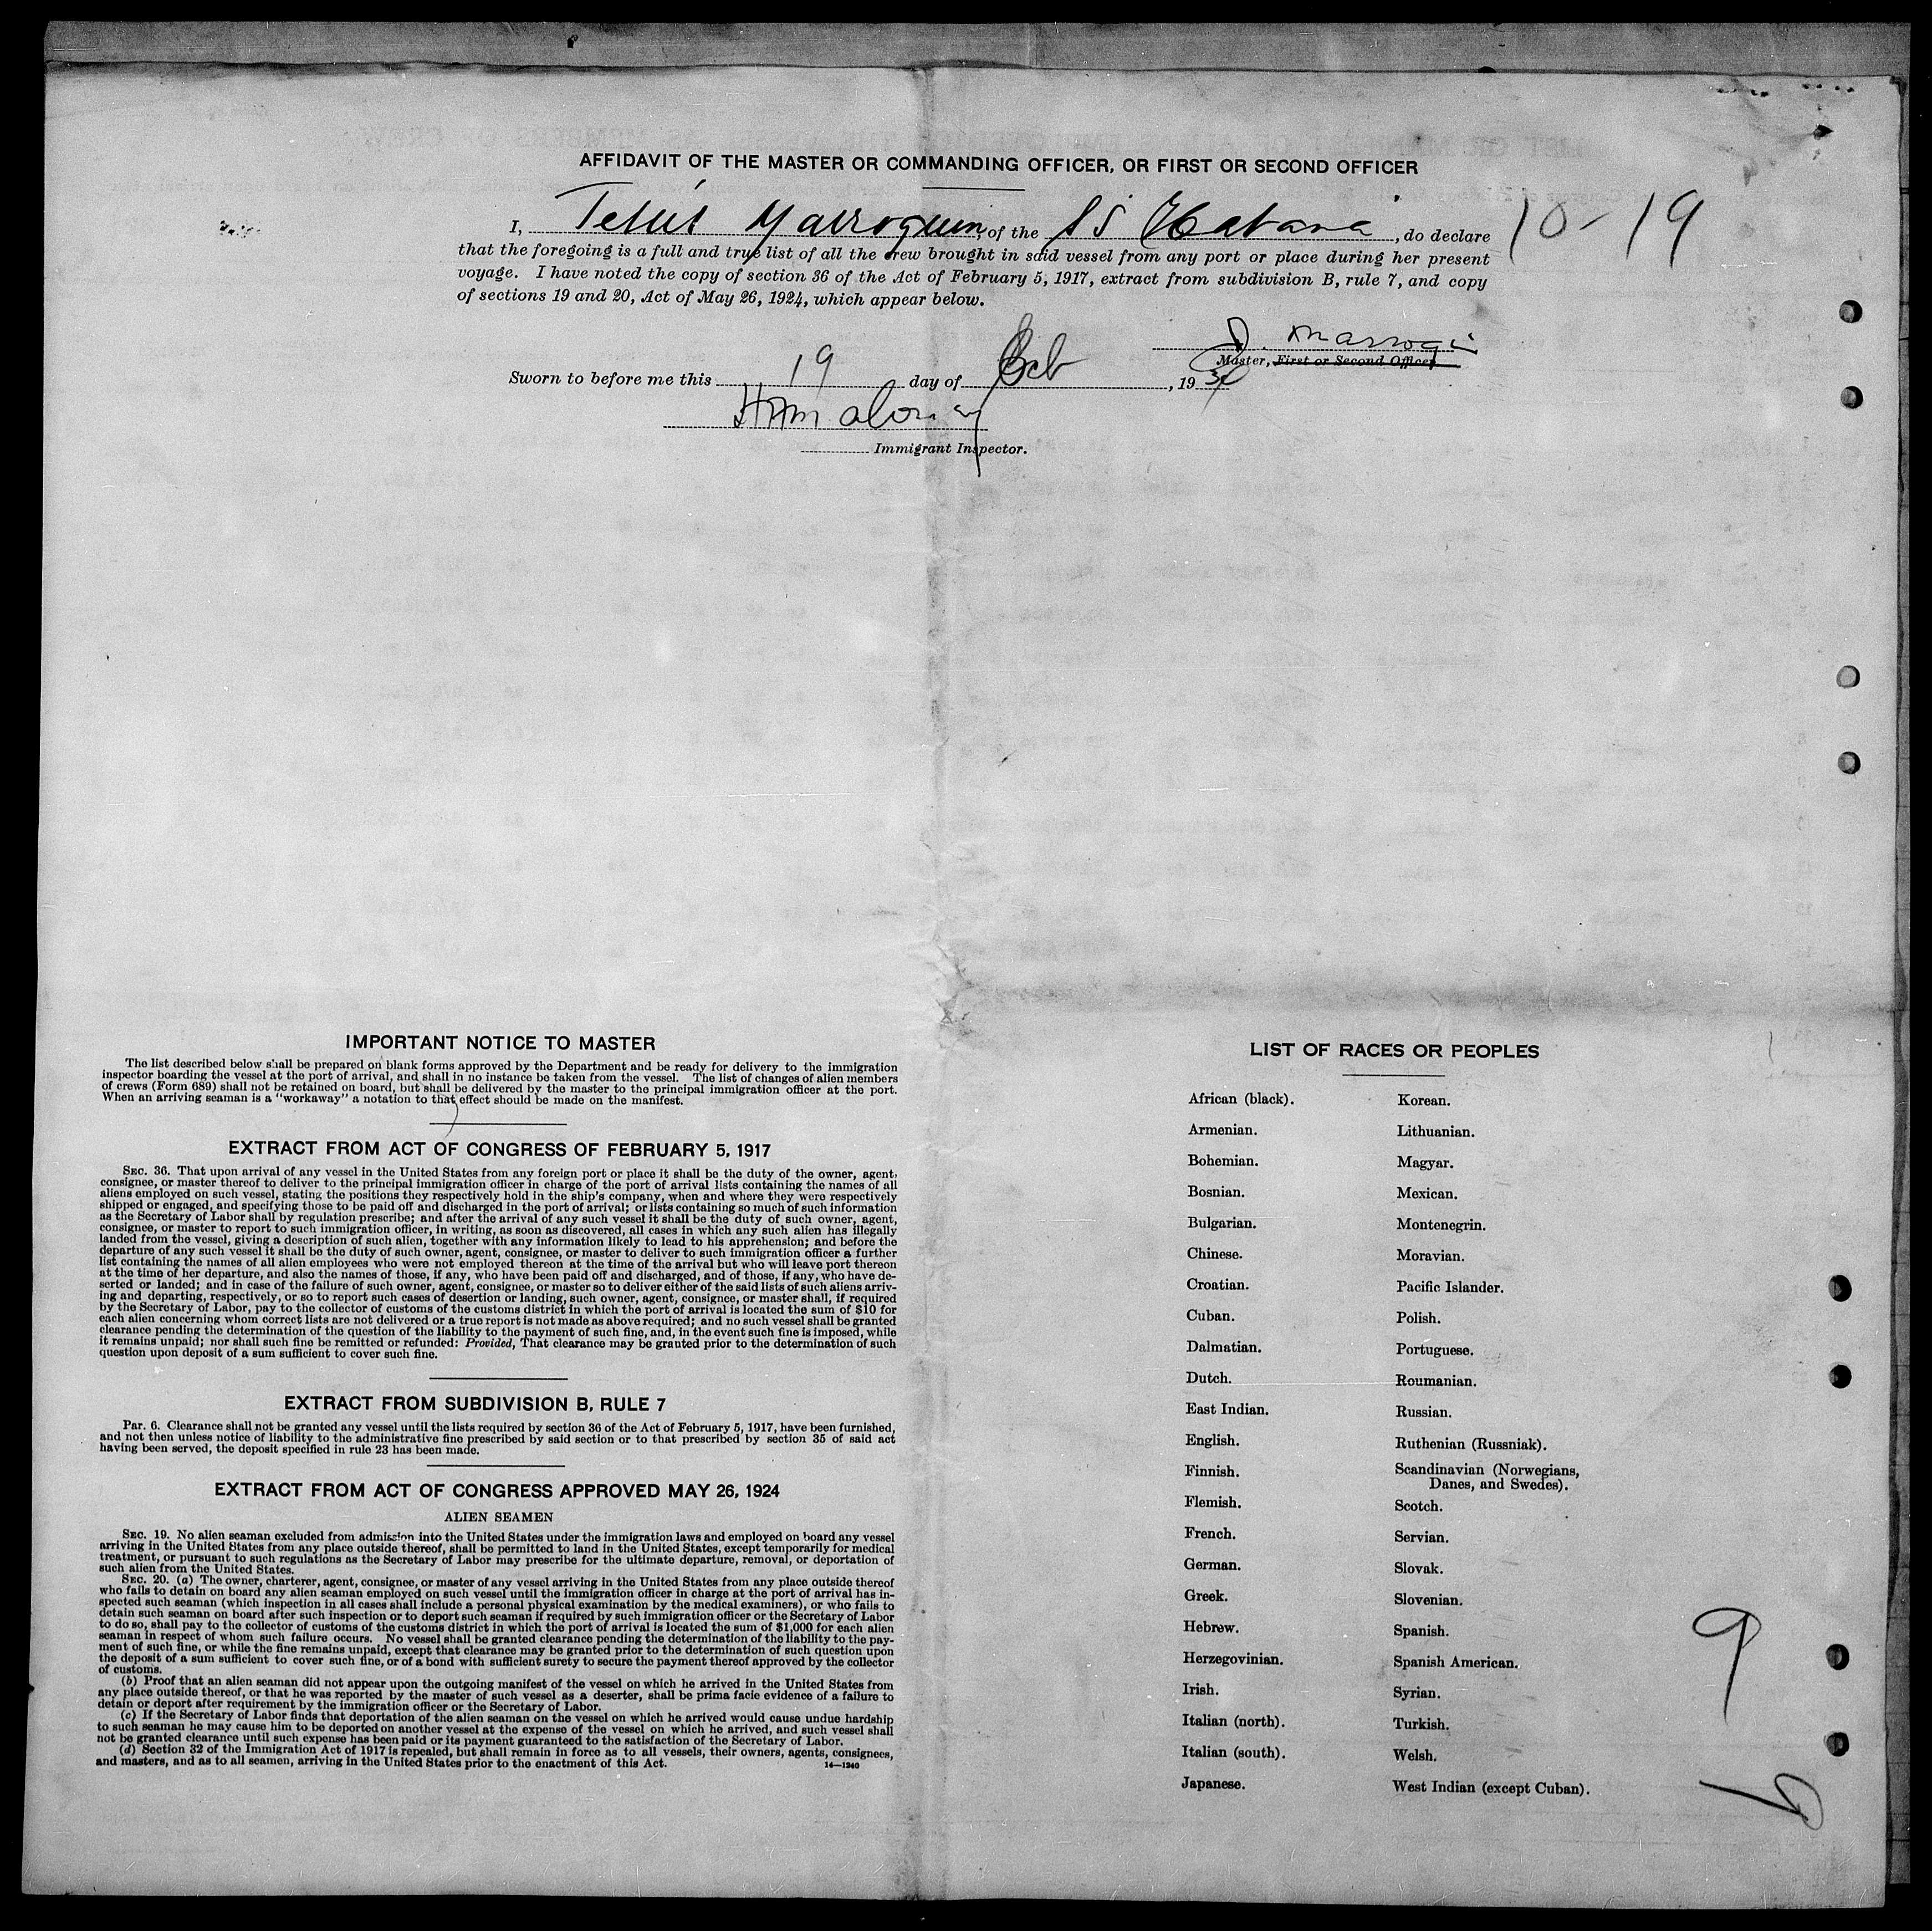 AFFIDAVIT OF THE MASTER OR COMMANDING OFFICER, OR FIRST OR SECOND OFFICER
I, Marroquin, of the SS Habana, do declare
10-19
that the foregoing is a full and true list of all the crew brought in said vessel from any port or place during her present
voyage. I have noted the copy of section 36 of the Act of February 5, 1917, extract from subdivision B, rule 7, and copy
of sections 19 and 20, Act of May 26, 1924, which appear below.
Master, First or Second Officer.
Sworn to before me this 19 day of Oct, 19
Immigrant Inspector.
IMPORTANT NOTICE TO MASTER
The list described below shall be prepared on blank forms approved by the Department and be ready for delivery to the immigration
inspector boarding the vessel at the port of arrival, and shall in no instance be taken from the vessel. The list of changes of alien members
of crews (Form 689) shall not be retained on board, but shall be delivered by the master to the principal immigration officer at the port.
When an arriving seaman is a "workaway" a notation to that effect should be made on the manifest.
EXTRACT FROM ACT OF CONGRESS OF FEBRUARY 5, 1917
SEC. 36. That upon arrival of any vessel in the United States from any foreign port or place it shall be the duty of the owner, agent,
consignee, or master thereof to deliver to the principal immigration officer in charge of the port of arrival lists containing the names of all
aliens employed on such vessel, stating the positions they respectively hold in the ship's company, when and where they were respectively
shipped or engaged, and specifying those to be paid off and discharged in the port of arrival; or lists containing so much of such information
as the Secretary of Labor shall by regulation prescribe; and after the arrival of any such vessel it shall be the duty of such owner, agent,
consignee, or master to report to such immigration officer, in writing, as soon as discovered, all cases in which any such alien has illegally
landed from the vessel, giving a description of such alien, together with any information likely to lead to his apprehension; and before the
departure of any such vessel it shall be the duty of such owner, agent, consignee, or master to deliver to such immigration officer a further
list containing the names of all alien employees who were not employed thereon at the time of the arrival but who will leave port thereon
at the time of her departure, and also the names of those, if any, who have been paid off and discharged, and of those, if any, who have de-
serted or landed; and in case of the failure of such owner, agent, consignee, or master so to deliver either of the said lists of such aliens arriv-
ing and departing, respectively, or so to report such cases of desertion or landing, such owner, agent, consignee, or master shall, if required
by the Secretary of Labor, pay to the collector of customs of the customs district in which the port of arrival is located the sum of $10 for
each alien concerning whom correct lists are not delivered or a true report is not made as above required; and no such vessel shall be granted
clearance pending the determination of the question of the liability to the payment of such fine, and, in the event such fine is imposed, while
it remains unpaid; nor shall such fine be remitted or refunded: Provided, That clearance may be granted prior to the determination of such
question upon deposit of a sum sufficient to cover such fine.
EXTRACT FROM SUBDIVISION B, RULE 7
Par. 6. Clearance shall not be granted any vessel until the lists required by section 36 of the Act of February 5, 1917, have been furnished,
and not then unless notice of liability to the administrative fine prescribed by said section or to that prescribed by section 35 of said act
having been served, the deposit specified in rule 23 has been made.
EXTRACT FROM ACT OF CONGRESS APPROVED MAY 26, 1924
ALIEN SEAMEN
SEC. 19. No alien seaman excluded from admission into the United States under the immigration laws and employed on board any vessel
arriving in the United States from any place outside thereof, shall be permitted to land in the United States, except temporarily for medical
treatment, or pursuant to such regulations as the Secretary of Labor may prescribe for the ultimate departure, removal, or deportation of
such alien from the United States.
SEC. 20. (a) The owner, charterer, agent, consignee, or master of any vessel arriving in the United States from any place outside thereof
who fails to detain on board any alien seaman employed on such vessel until the immigration officer in charge at the port of arrival has in-
spected such seaman (which inspection in all cases shall include a personal physical examination by the medical examiners), or who fails to
detain such seaman on board after such inspection or to deport such seaman if required by such immigration officer or the Secretary of Labor
to do so, shall pay to the collector of customs of the customs district in which the port of arrival is located the sum of $1,000 for each alien
seaman in respect of whom such failure occurs. No vessel shall be granted clearance pending the determination of the liability to the pay-
ment of such fine, or while the fine remains unpaid, except that clearance may be granted prior to the determination of such question upon
the deposit of a sum sufficient to cover such fine, or of a bond with sufficient surety to secure the payment thereof approved by the collector
of customs.
(b) Proof that an alien seaman did not appear upon the outgoing manifest of the vessel on which he arrived in the United States from
any place outside thereof, or that he was reported by the master of such vessel as a deserter, shall be prima facie evidence of a failure to
detain or deport after requirement by the immigration officer or the Secretary of Labor.
(c) If the Secretary of Labor finds that deportation of the alien seaman on the vessel on which he arrived would cause undue hardship
to such seaman he may cause him to be deported on another vessel at the expense of the vessel on which he arrived, and such vessel shall
not be granted clearance until such expense has been paid or its payment guaranteed to the satisfaction of the Secretary of Labor.
(d) Section 32 of the Immigration Act of 1917 is repealed, but shall remain in force as to all vessels, their owners, agents, consignees,
and masters, and as to all seamen, arriving in the United States prior to the enactment of this Act.
14—1240
LIST OF RACES OR PEOPLES
African (black).
Armenian.
Bohemian.
Bosnian.
Bulgarian.
Chinese.
Croatian.
Cuban.
Dalmatian.
Dutch.
East Indian.
English.
Finnish.
Flemish.
French.
German.
Greek.
Hebrew.
Herzegovinian.
Irish.
Italian (north).
Italian (south).
Japanese.
Korean.
Lithuanian.
Magyar.
Mexican.
Montenegrin.
Moravian.
Pacific Islander.
Polish.
Portuguese.
Roumanian.
Russian.
Ruthenian (Russniak).
Scandinavian (Norwegians,
Danes, and Swedes).
Scotch.
Servian.
Slovak.
Slovenian.
Spanish.
Spanish American.
Syrian.
Turkish.
Welsh.
West Indian (except Cuban).
9